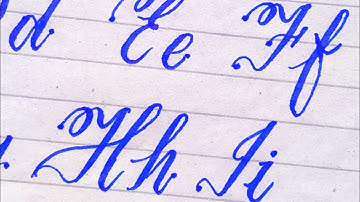 d Ee Ff
Hh Ii